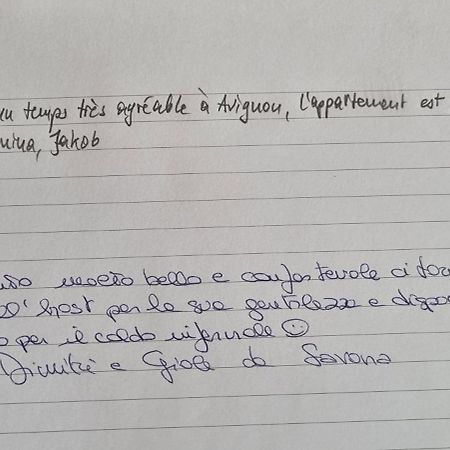 temps très agréable à Avignon, l'appartement est
Jakob
molto bello e confortevole ci
host per la sua gentilezza e
per il caldo infernale ☺
Dimitri e Giole da Savona